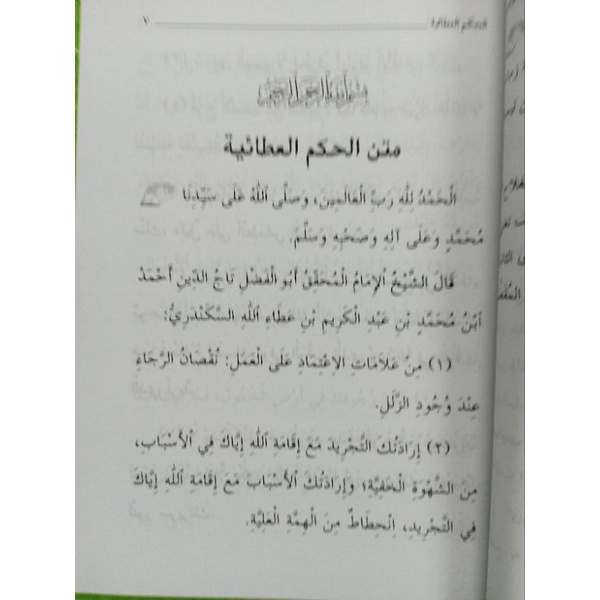 الحكم العطائية ٧
بسم الله الرحمن الرحيم
متن الحكم العطائية
الْحَمْدُ لِلَّهِ رَبِّ الْعَالَمِينَ، وَصَلَّى اللهُ عَلَى سَيِّدِنَا
مُحَمَّدٍ وَعَلَى آلِهِ وَصَحْبِهِ وَسَلَّمَ.
قَالَ الشَّيْخُ الإِمَامُ الْمُحَقِّقُ أَبُو الْفَضْلِ تَاجُ الدِّينِ أَحْمَدُ
ابْنُ مُحَمَّدِ بْنِ عَبْدِ الْكَرِيمِ بْنِ عَطَاءِ اللهِ السَّكَنْدَرِيُّ:
(١) مِنْ عَلَامَاتِ الِاعْتِمَادِ عَلَى الْعَمَلِ: نُقْصَانُ الرَّجَاءِ
عِنْدَ وُجُودِ الزَّلَلِ.
(٢) إِرَادَتُكَ التَّجْرِيدَ مَعَ إِقَامَةِ اللهِ إِيَّاكَ فِي الْأَسْبَابِ،
مِنَ الشَّهْوَةِ الْخَفِيَّةِ؛ وَإِرَادَتُكَ الْأَسْبَابَ مَعَ إِقَامَةِ اللهِ إِيَّاكَ
فِي التَّجْرِيدِ، اِنْحِطَاطٌ مِنَ الْهِمَّةِ الْعَلِيَّةِ.